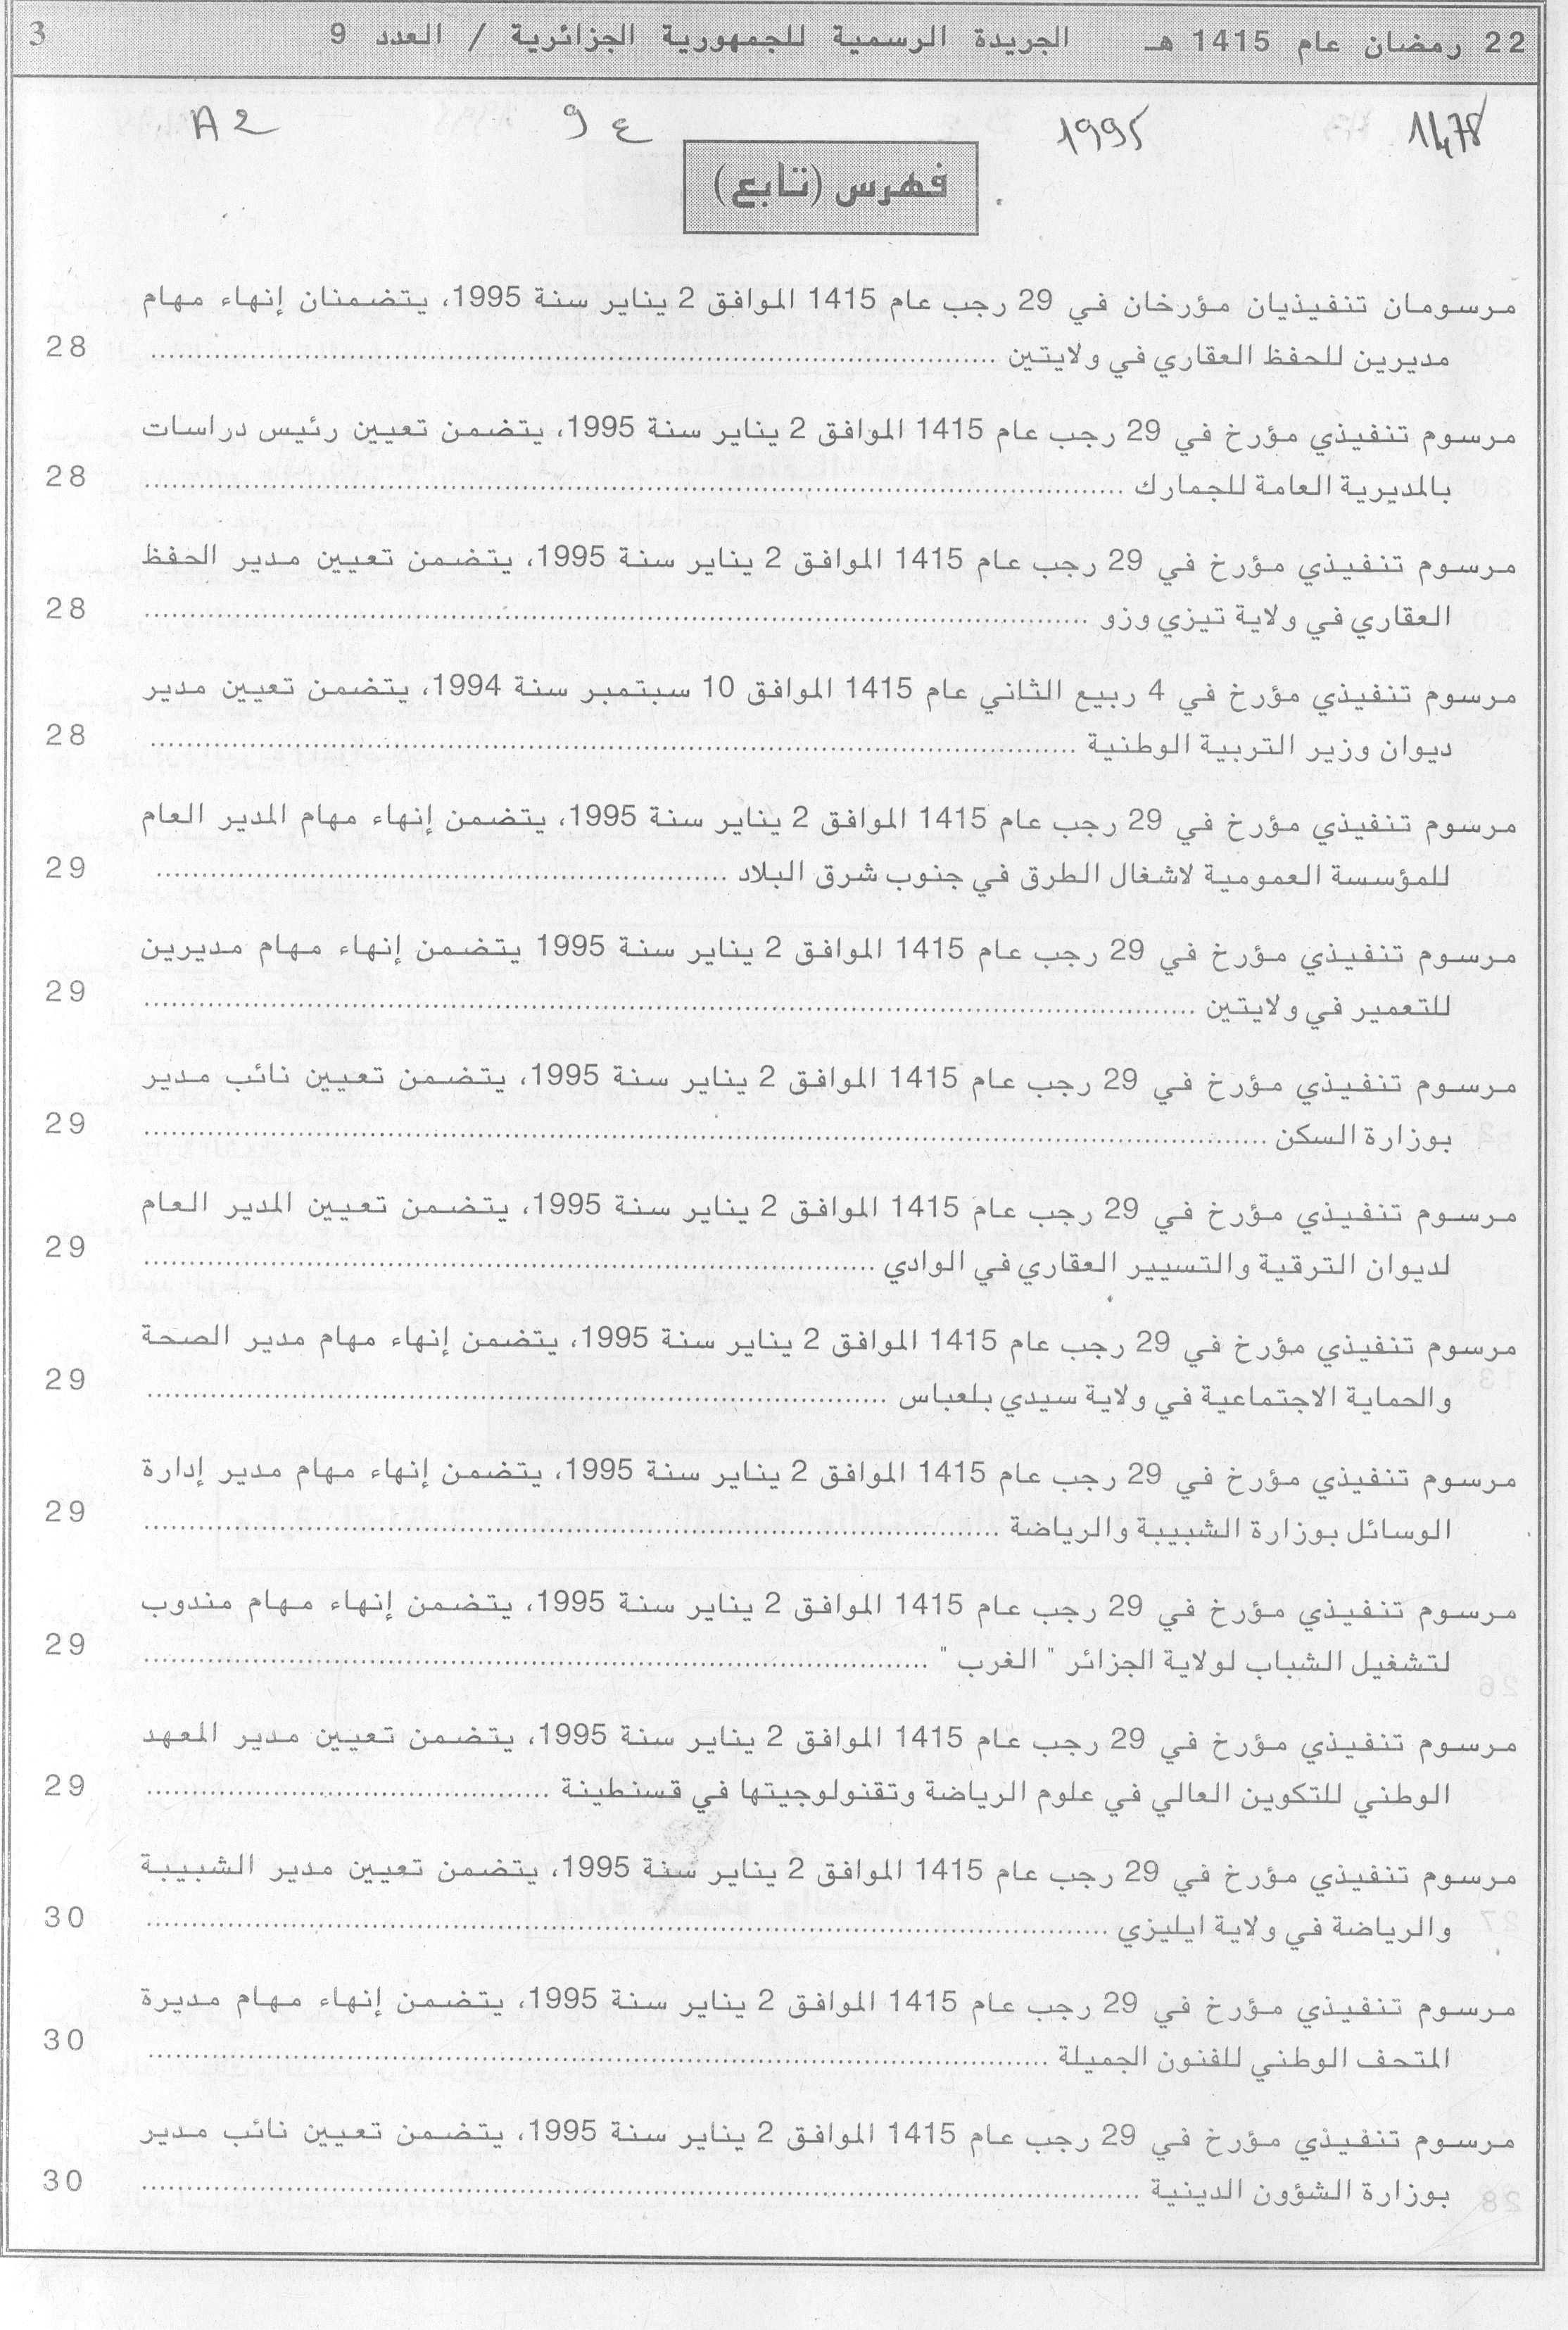 22 رمضان عام 1415 هـ الجريدة الرسمية للجمهورية الجزائرية / العدد 9 3
1478 1995 9 ع A 2
فهرس (تابع)
مرسومان تنفيذيان مؤرخان في 29 رجب عام 1415 الموافق 2 يناير سنة 1995، يتضمنان إنهاء مهام
مديرين للحفظ العقاري في ولايتين ........................................ 28
مرسوم تنفيذي مؤرخ في 29 رجب عام 1415 الموافق 2 يناير سنة 1995، يتضمن تعيين رئيس دراسات
بالمديرية العامة للجمارك ........................................ 28
مرسوم تنفيذي مؤرخ في 29 رجب عام 1415 الموافق 2 يناير سنة 1995، يتضمن تعيين مدير الحفظ
العقاري في ولاية تيزي وزو ........................................ 28
مرسوم تنفيذي مؤرخ في 4 ربيع الثاني عام 1415 الموافق 10 سبتمبر سنة 1994، يتضمن تعيين مدير
ديوان وزير التربية الوطنية ........................................ 28
مرسوم تنفيذي مؤرخ في 29 رجب عام 1415 الموافق 2 يناير سنة 1995، يتضمن إنهاء مهام المدير العام
للمؤسسة العمومية لاشغال الطرق في جنوب شرق البلاد ........................................ 29
مرسوم تنفيذي مؤرخ في 29 رجب عام 1415 الموافق 2 يناير سنة 1995 يتضمن إنهاء مهام مديرين
للتعمير في ولايتين ........................................ 29
مرسوم تنفيذي مؤرخ في 29 رجب عام 1415 الموافق 2 يناير سنة 1995، يتضمن تعيين نائب مدير
بوزارة السكن ........................................ 29
مرسوم تنفيذي مؤرخ في 29 رجب عام 1415 الموافق 2 يناير سنة 1995، يتضمن تعيين المدير العام
لديوان الترقية والتسيير العقاري في الوادي ........................................ 29
مرسوم تنفيذي مؤرخ في 29 رجب عام 1415 الموافق 2 يناير سنة 1995، يتضمن إنهاء مهام مدير الصحة
والحماية الاجتماعية في ولاية سيدي بلعباس ........................................ 29
مرسوم تنفيذي مؤرخ في 29 رجب عام 1415 الموافق 2 يناير سنة 1995، يتضمن إنهاء مهام مدير إدارة
الوسائل بوزارة الشبيبة والرياضة ........................................ 29
مرسوم تنفيذي مؤرخ في 29 رجب عام 1415 الموافق 2 يناير سنة 1995، يتضمن إنهاء مهام مندوب
لتشغيل الشباب لولاية الجزائر " الغرب " ........................................ 29
مرسوم تنفيذي مؤرخ في 29 رجب عام 1415 الموافق 2 يناير سنة 1995، يتضمن تعيين مدير المعهد
الوطني للتكوين العالي في علوم الرياضة وتقنولوجيتها في قسنطينة ........................................ 29
مرسوم تنفيذي مؤرخ في 29 رجب عام 1415 الموافق 2 يناير سنة 1995، يتضمن تعيين مدير الشبيبة
والرياضة في ولاية ايليزي ........................................ 30
مرسوم تنفيذي مؤرخ في 29 رجب عام 1415 الموافق 2 يناير سنة 1995، يتضمن إنهاء مهام مديرة
المتحف الوطني للفنون الجميلة ........................................ 30
مرسوم تنفيذي مؤرخ في 29 رجب عام 1415 الموافق 2 يناير سنة 1995، يتضمن تعيين نائب مدير
بوزارة الشؤون الدينية ........................................ 30